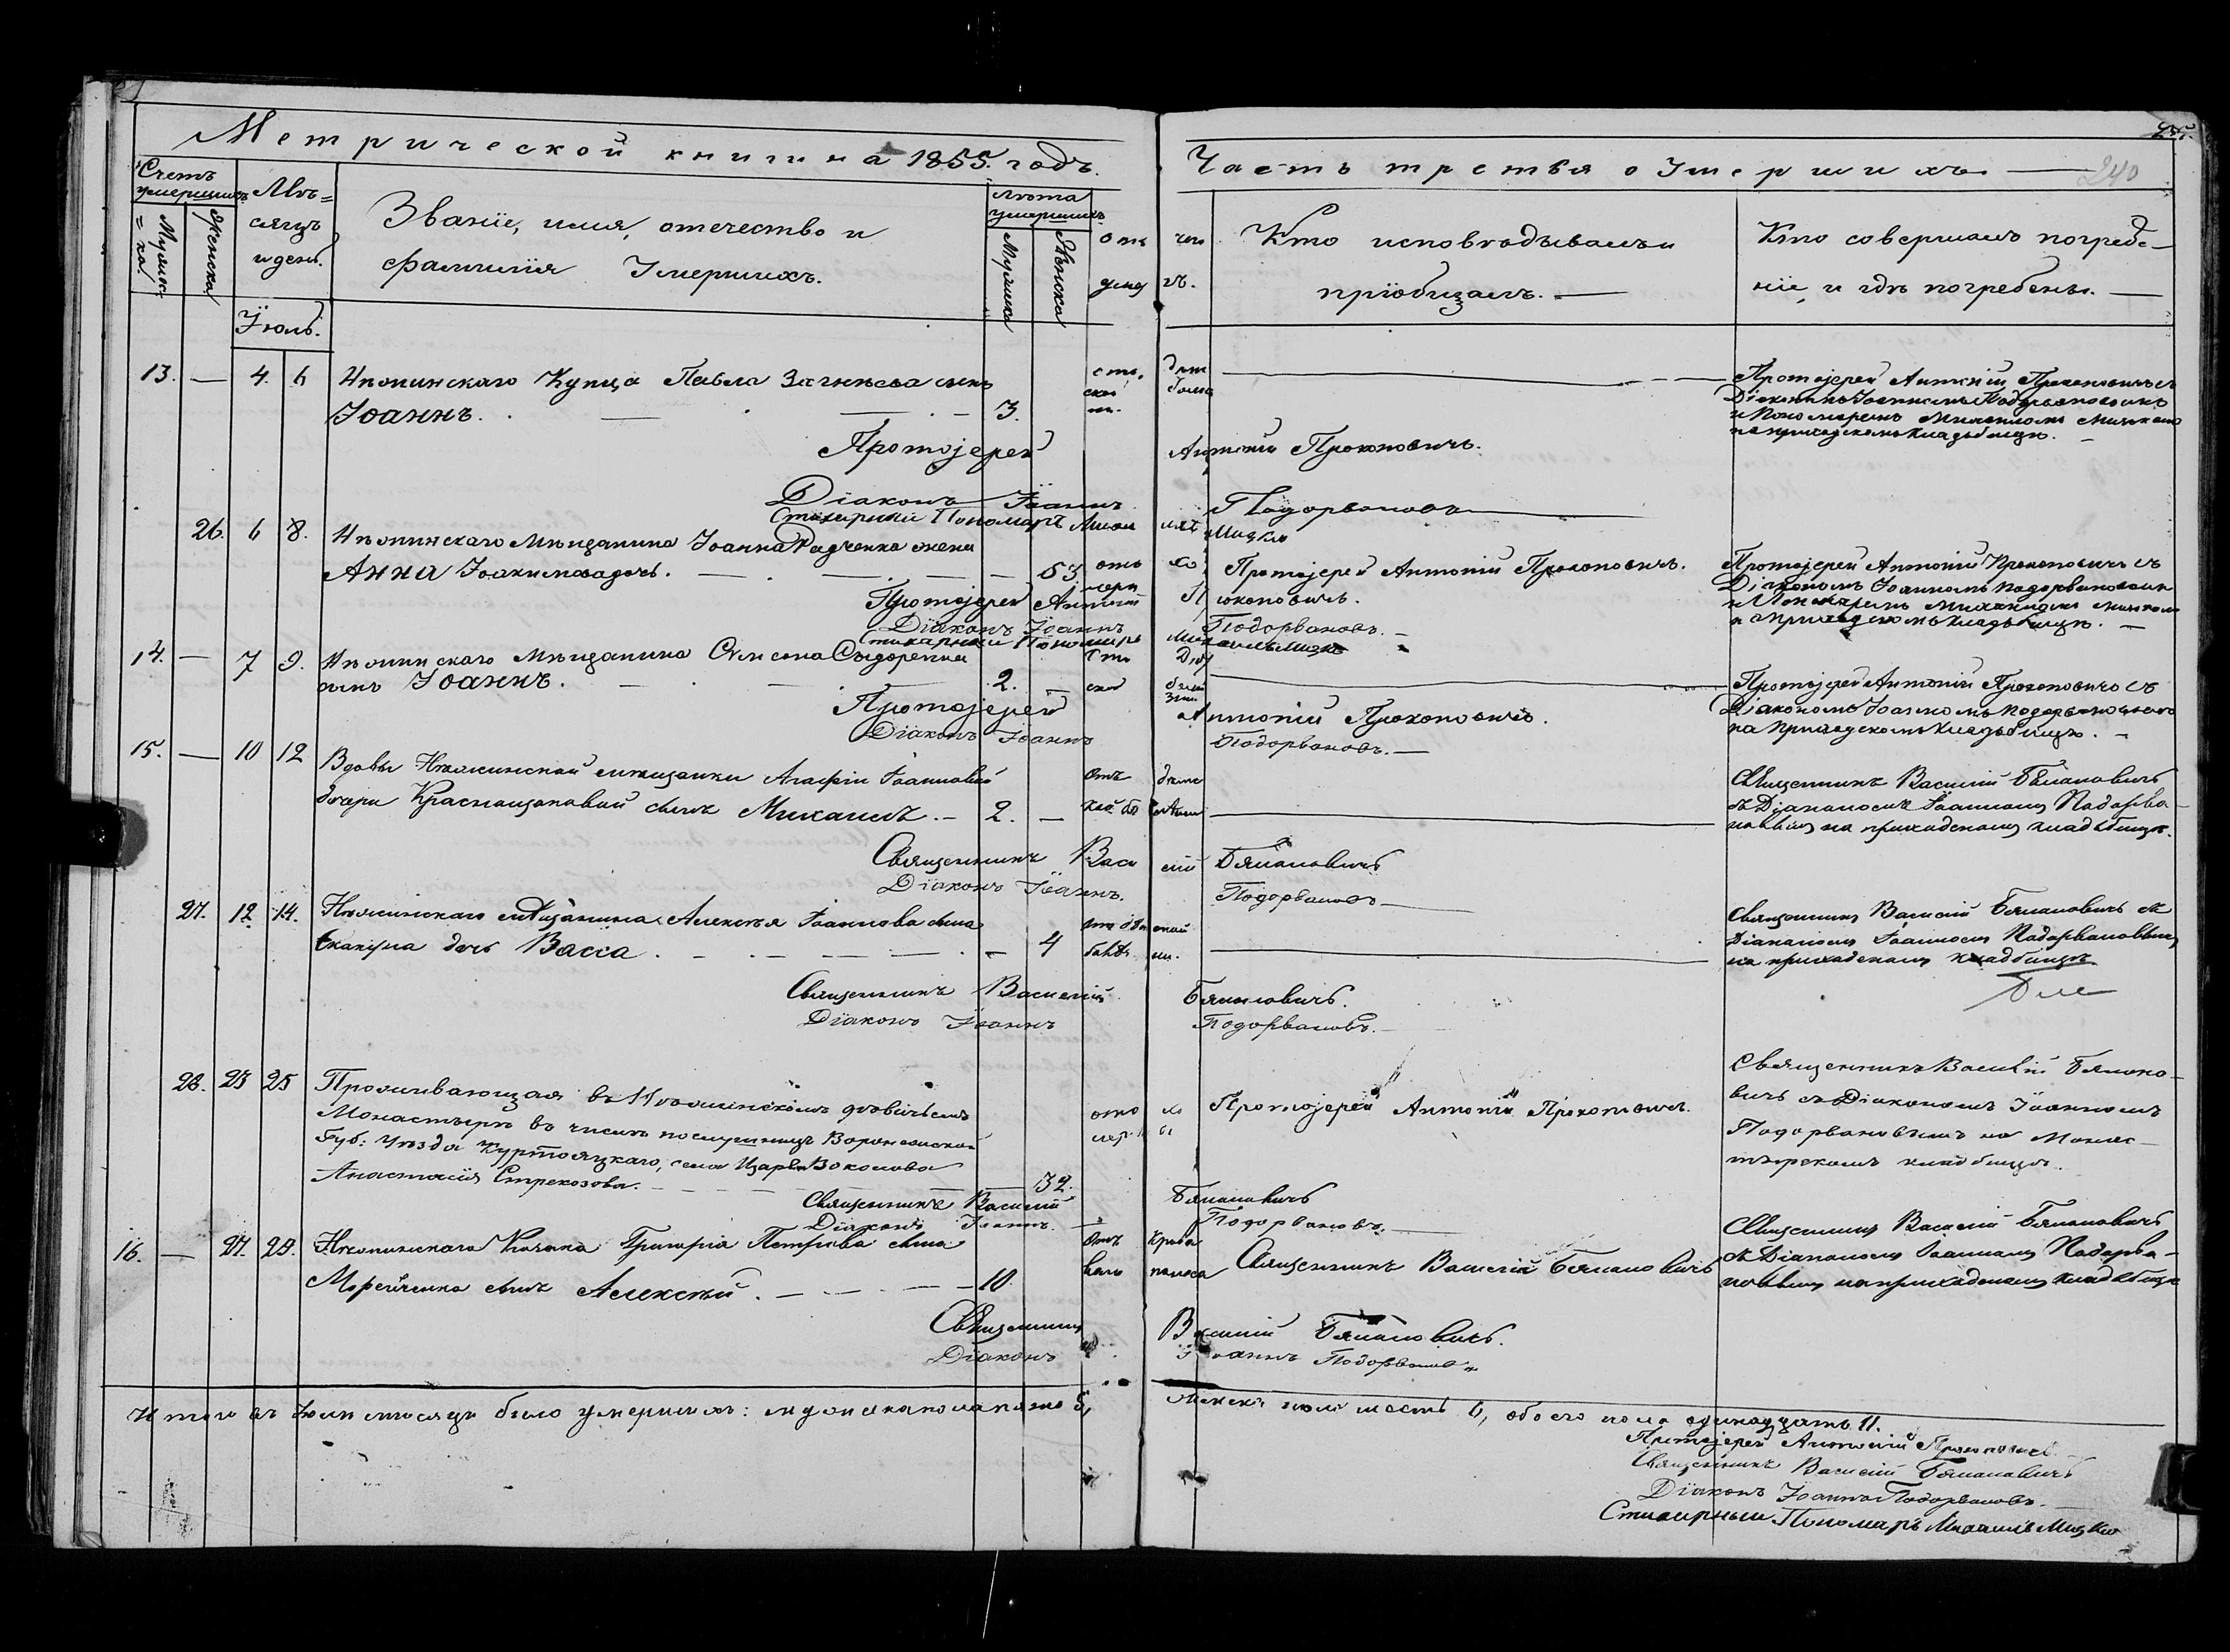 Метрической книги на 1855. годъ.
Часть третья о Умершихъ. 240
Счетъ умершихъ
Мужес= ка.
Женска
Мѣ= сяцъ и день.
Званіе, имя, отечество и
фамилія Умершихъ.
Лѣта умершихъ
Мужска
Женска
отъ чего
умеръ.
Кто исповѣдывалъ и
пріобщалъ.
Кто совершалъ погребе-
ніе, и гдѣ погребены.
Іюль.
13. — 4. 6 Нѣжинскаго Купца Павла сынъ
Іоаннъ. 3.
отъ дѣт
ской болѣз
Протоіерей Антоній Прокоповичъ съ
Діакономъ Іоанномъ Подорвановымъ
и Пономаремъ Михаиломъ
на приходскомъ кладбищѣ.
Протоіерей Антоній Прокоповичъ.
Діаконъ Іоаннъ Подорвановъ
Стихарный Пономарь Михаилъ Мизко
26. 6 8. Нѣжинскаго Мѣщанина Іоанна Радченка жена
Анна Іоакимова дочь. 53.
отъ хо
леры
Протоіерей Антоній Прокоповичъ.
Протоіерей Антоній Прокоповичъ съ
Діакономъ Іоанномъ Подорвановымъ
и Пономаремъ Михаиломъ
на приходскомъ кладбищѣ.
Протоіерей Антоній Прокоповичъ.
Діаконъ Іоаннъ Подорвановъ.
Стихарный Пономарь Михаилъ Мизко
14. — 7 9. Нѣжинскаго Мѣщанина Симеона Сидоренка
сынъ Іоаннъ. 2. —
Протоіерей Антоній Прокоповичъ съ
Діакономъ Іоанномъ Подорвановымъ
на приходскомъ кладбищѣ.
Протоіерей Антоній Прокоповичъ.
Діаконъ Іоаннъ Подорвановъ.
15. — 10 12 Вдовы Нѣжинской мѣщанки Агафіи Іоанновой
дочери Краснощоковой сынъ Михаилъ. — 2. —
отъ дѣтс
кой болѣзни
Священникъ Василій Бѣлановичъ
съ Діакономъ Іоанномъ Подорва-
новымъ на приходскомъ кладбищѣ.
Священникъ Василій Бѣлановичъ
Діаконъ Іоаннъ. Подорвановъ
27. 12. 14. Нѣжинскаго мѣщанина Алексѣя Іоаннова сына
дочь Васса. 4
Священникъ Василій Бѣлановичъ съ
Діакономъ Іоанномъ Подорвановымъ
на приходскомъ кладбищѣ.
Священникъ Василій Бѣлановичъ.
Діаконъ Іоаннъ Подорвановъ.
28. 23 25 Проживающая въ Нѣжинскомъ дѣвичьемъ
Монастырѣ въ числѣ послушницъ Воронежской
Губ: Уѣзда
Анастасія Стрекозова. 32.
отъ хо
леры
Протоіерей Антоній Прокоповичъ.
Священникъ Василій Бѣлано-
вичъ съ Діакономъ Іоанномъ
Подорвановымъ на Монас-
тырскомъ кладбищѣ.
Священникъ Василій Бѣлановичъ
Діаконъ Іоаннъ. Подорвановъ.
16. — 27. 29. Нѣжинскаго Козака Григорія Петрова сына
сынъ Алексѣй. 10.
отъ крова
ваго поноса
Священникъ Василій Бѣлановичъ
Священникъ Василій Бѣлановичъ
съ Діакономъ Іоанномъ Подорва-
новымъ на приходскомъ кладбищѣ
Священникъ Василій Бѣлановичъ.
Діаконъ Іоаннъ Подорвановъ
Итого въ Іюлѣ мѣсяцѣ было умершихъ: мужеска пола пять 5, женска пола шесть 6, обоего пола одинадцать 11.
Протоіерей Антоній Прокоповичъ
Священникъ Василій Бѣлановичъ
Діаконъ Іоаннъ Подорвановъ.
Стихарный Пономарь Михаилъ Мизко